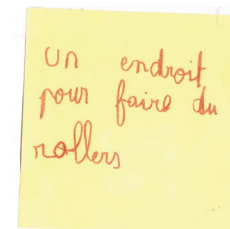 un endroit
pour faire du
rollers